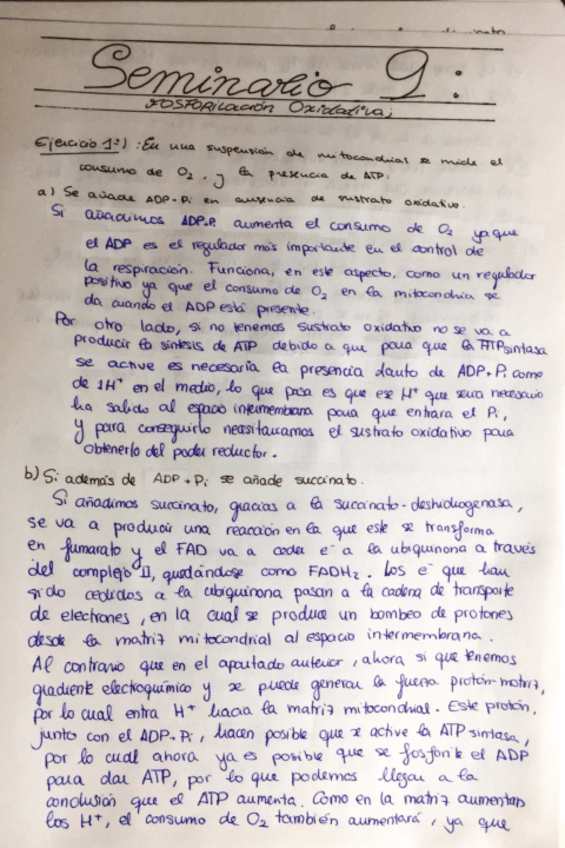 Seminario 9:
FOSFORILACIÓN OXIDATIVA;
Ejercicio 1º) : En una suspensión de mitocondrial se mide el
consumo de O2 y la presencia de ATP.
a) Se añade ADP+Pi en ausencia de sustrato oxidativo.
Si añadimos ADP+Pi aumenta el consumo de O2 ya que
el ADP es el regulador más importante en el control de
la respiración. Funciona, en este aspecto, como un regulador
positivo ya que el consumo de O2 en la mitocondria se
da cuando el ADP está presente.
Por otro lado, si no tenemos sustrato oxidativo no se va a
producir la síntesis de ATP debido a que para que la ATPsintasa
se active es necesaria la presencia tanto de ADP+Pi como
de 1H+ en el medio, lo que pasa es que ese H+ que sería necesario
ha salido al espacio intermembrana para que entrara el Pi,
y para conseguirlo necesitaríamos el sustrato oxidativo para
obtenerlo del poder reductor.
b) Si además de ADP + Pi se añade succinato.
Si añadimos succinato, gracias a la succinato-deshidrogenasa,
se va a producir una reacción en la que este se transforma
en fumarato y el FAD va a ceder e- a la ubiquinona a través
del complejo II, quedándose como FADH2. Los e- que han
sido cedidos a la ubiquinona pasan a la cadena de transporte
de electrones, en la cual se produce un bombeo de protones
desde la matriz mitocondrial al espacio intermembrana.
Al contrario que en el apartado anterior, ahora si que tenemos
gradiente electroquímico y se puede generar la fuerza protón-motriz,
por lo cual entra H+ hacia la matriz mitocondrial. Este protón,
junto con el ADP+Pi, hacen posible que se active la ATP sintasa,
por lo cual ahora ya es posible que se fosforile el ADP
para dar ATP, por lo que podemos llegar a la
conclusión que el ATP aumenta. Como en la matriz aumentan
los H+, el consumo de O2 también aumentará, ya que